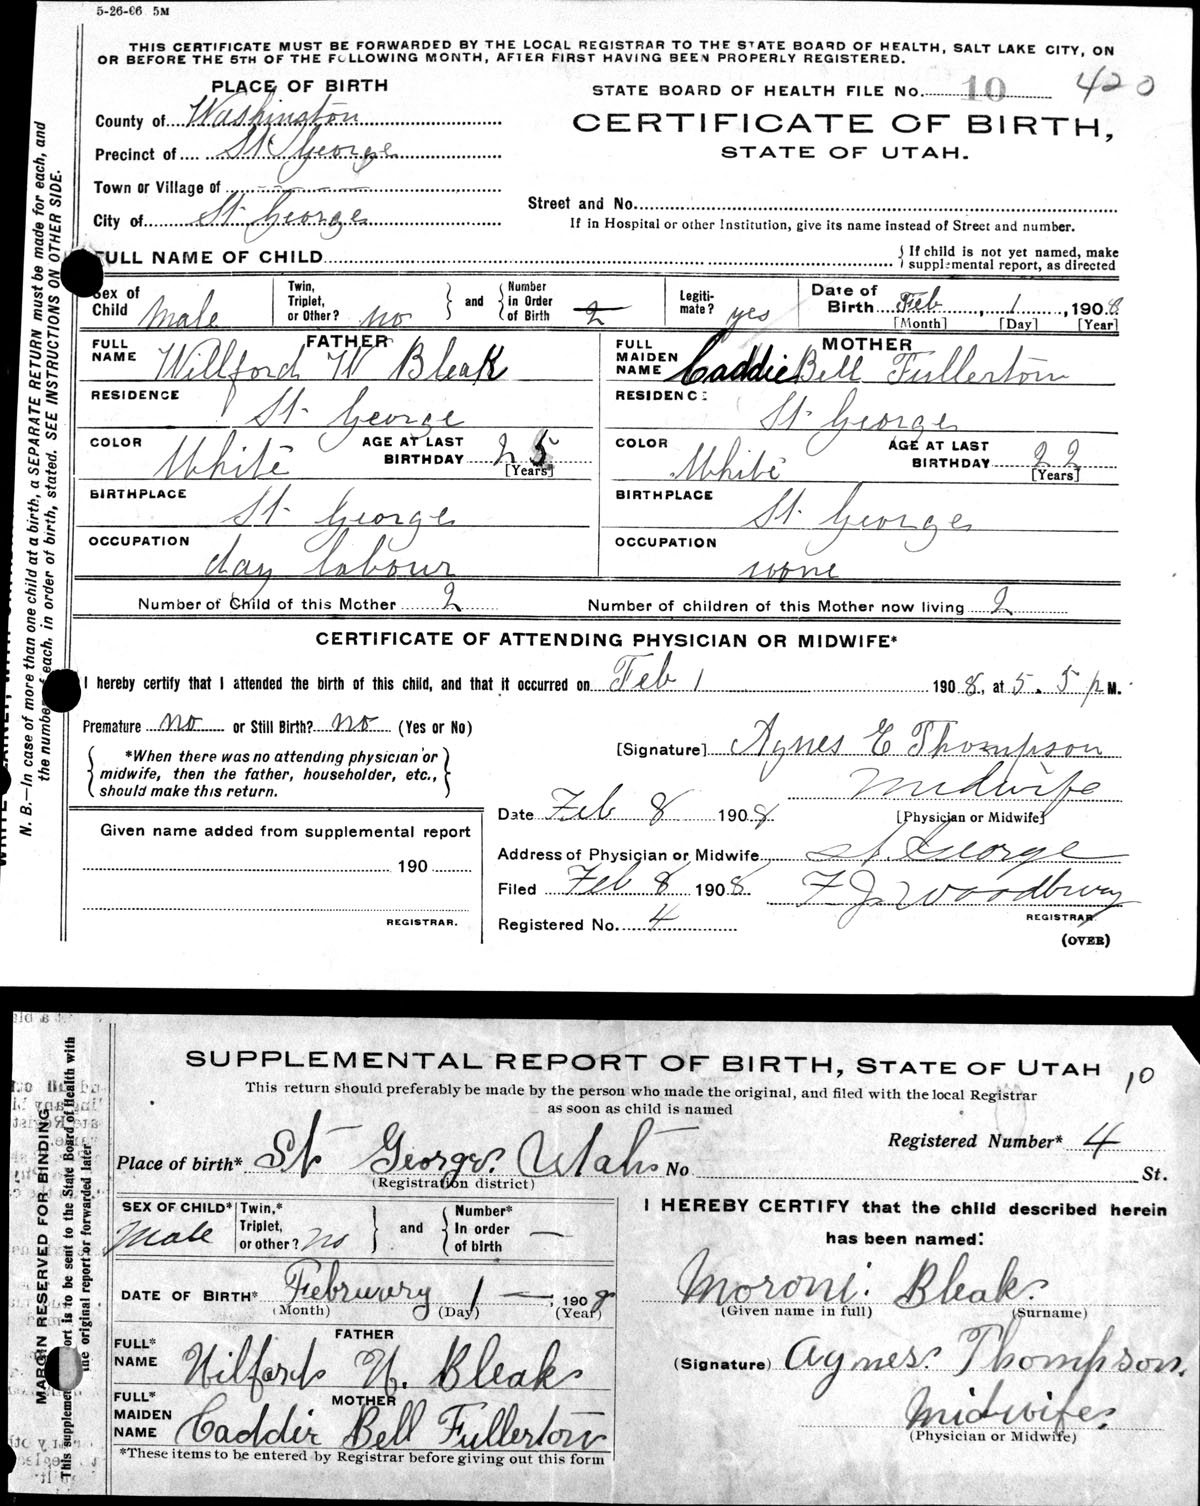 5-26-06 5M
THIS CERTIFICATE MUST BE FORWARDED BY THE LOCAL REGISTRAR TO THE STATE BOARD OF HEALTH, SALT LAKE CITY, ON
OR BEFORE THE 5TH OF THE FOLLOWING MONTH, AFTER FIRST HAVING BEEN PROPERLY REGISTERED.
PLACE OF BIRTH
STATE BOARD OF HEALTH FILE No. 10 420
County of Washington
CERTIFICATE OF BIRTH,
Precinct of St George
STATE OF UTAH.
Town or Village of
City of St. George
Street and No.
If in Hospital or other Institution, give its name instead of Street and number.
FULL NAME OF CHILD
If child is not yet named, make supplemental report, as directed
Sex of Child Male
Twin, Triplet, or Other? no
and Number in Order of Birth 2
Legitimate? yes
Date of Birth Feb 1, 1908
[Month] [Day] [Year]
FATHER
FULL NAME Willford W Bleak
MOTHER
FULL MAIDEN NAME Caddie Bell Fullerton
RESIDENCE St. George
RESIDENCE St. George
COLOR White AGE AT LAST BIRTHDAY 25 [Years]
COLOR White AGE AT LAST BIRTHDAY 22 [Years]
BIRTHPLACE St. George
BIRTHPLACE St. George
OCCUPATION day labour
OCCUPATION none
Number of Child of this Mother 2 Number of children of this Mother now living 2
CERTIFICATE OF ATTENDING PHYSICIAN OR MIDWIFE*
I hereby certify that I attended the birth of this child, and that it occurred on Feb 1 1908, at 5.5 p M.
Premature no or Still Birth? no (Yes or No)
[Signature] Agnes E Thompson
*When there was no attending physician or
midwife, then the father, householder, etc.,
should make this return.
Midwife
[Physician or Midwife]
Date Feb 8 1908
Given name added from supplemental report
190
REGISTRAR.
Address of Physician or Midwife St. George
Filed Feb 8 1908 F J Woodbury
REGISTRAR
Registered No. 4
(OVER)
N. B.—In case of more than one child at a birth, a SEPARATE RETURN must be made for each, and
the number of each, in order of birth, stated. SEE INSTRUCTIONS ON OTHER SIDE.
SUPPLEMENTAL REPORT OF BIRTH, STATE OF UTAH 10
This return should preferably be made by the person who made the original, and filed with the local Registrar
as soon as child is named
Registered Number* 4
Place of birth* St George Utah No St.
(Registration district)
SEX OF CHILD* Male
Twin,* Triplet, or other? no
and Number* In order of birth —
I HEREBY CERTIFY that the child described herein
has been named:
DATE OF BIRTH* Februrery 1 — , 1908
(Month) (Day) (Year)
Moroni Bleak
(Given name in full) (Surname)
FATHER
FULL* NAME Wilford W. Bleak
(Signature) Agnes Thompson
MOTHER
FULL* MAIDEN NAME Caddie Bell Fullerton
Midwife
(Physician or Midwife)
*These items to be entered by Registrar before giving out this form
MARGIN RESERVED FOR BINDING